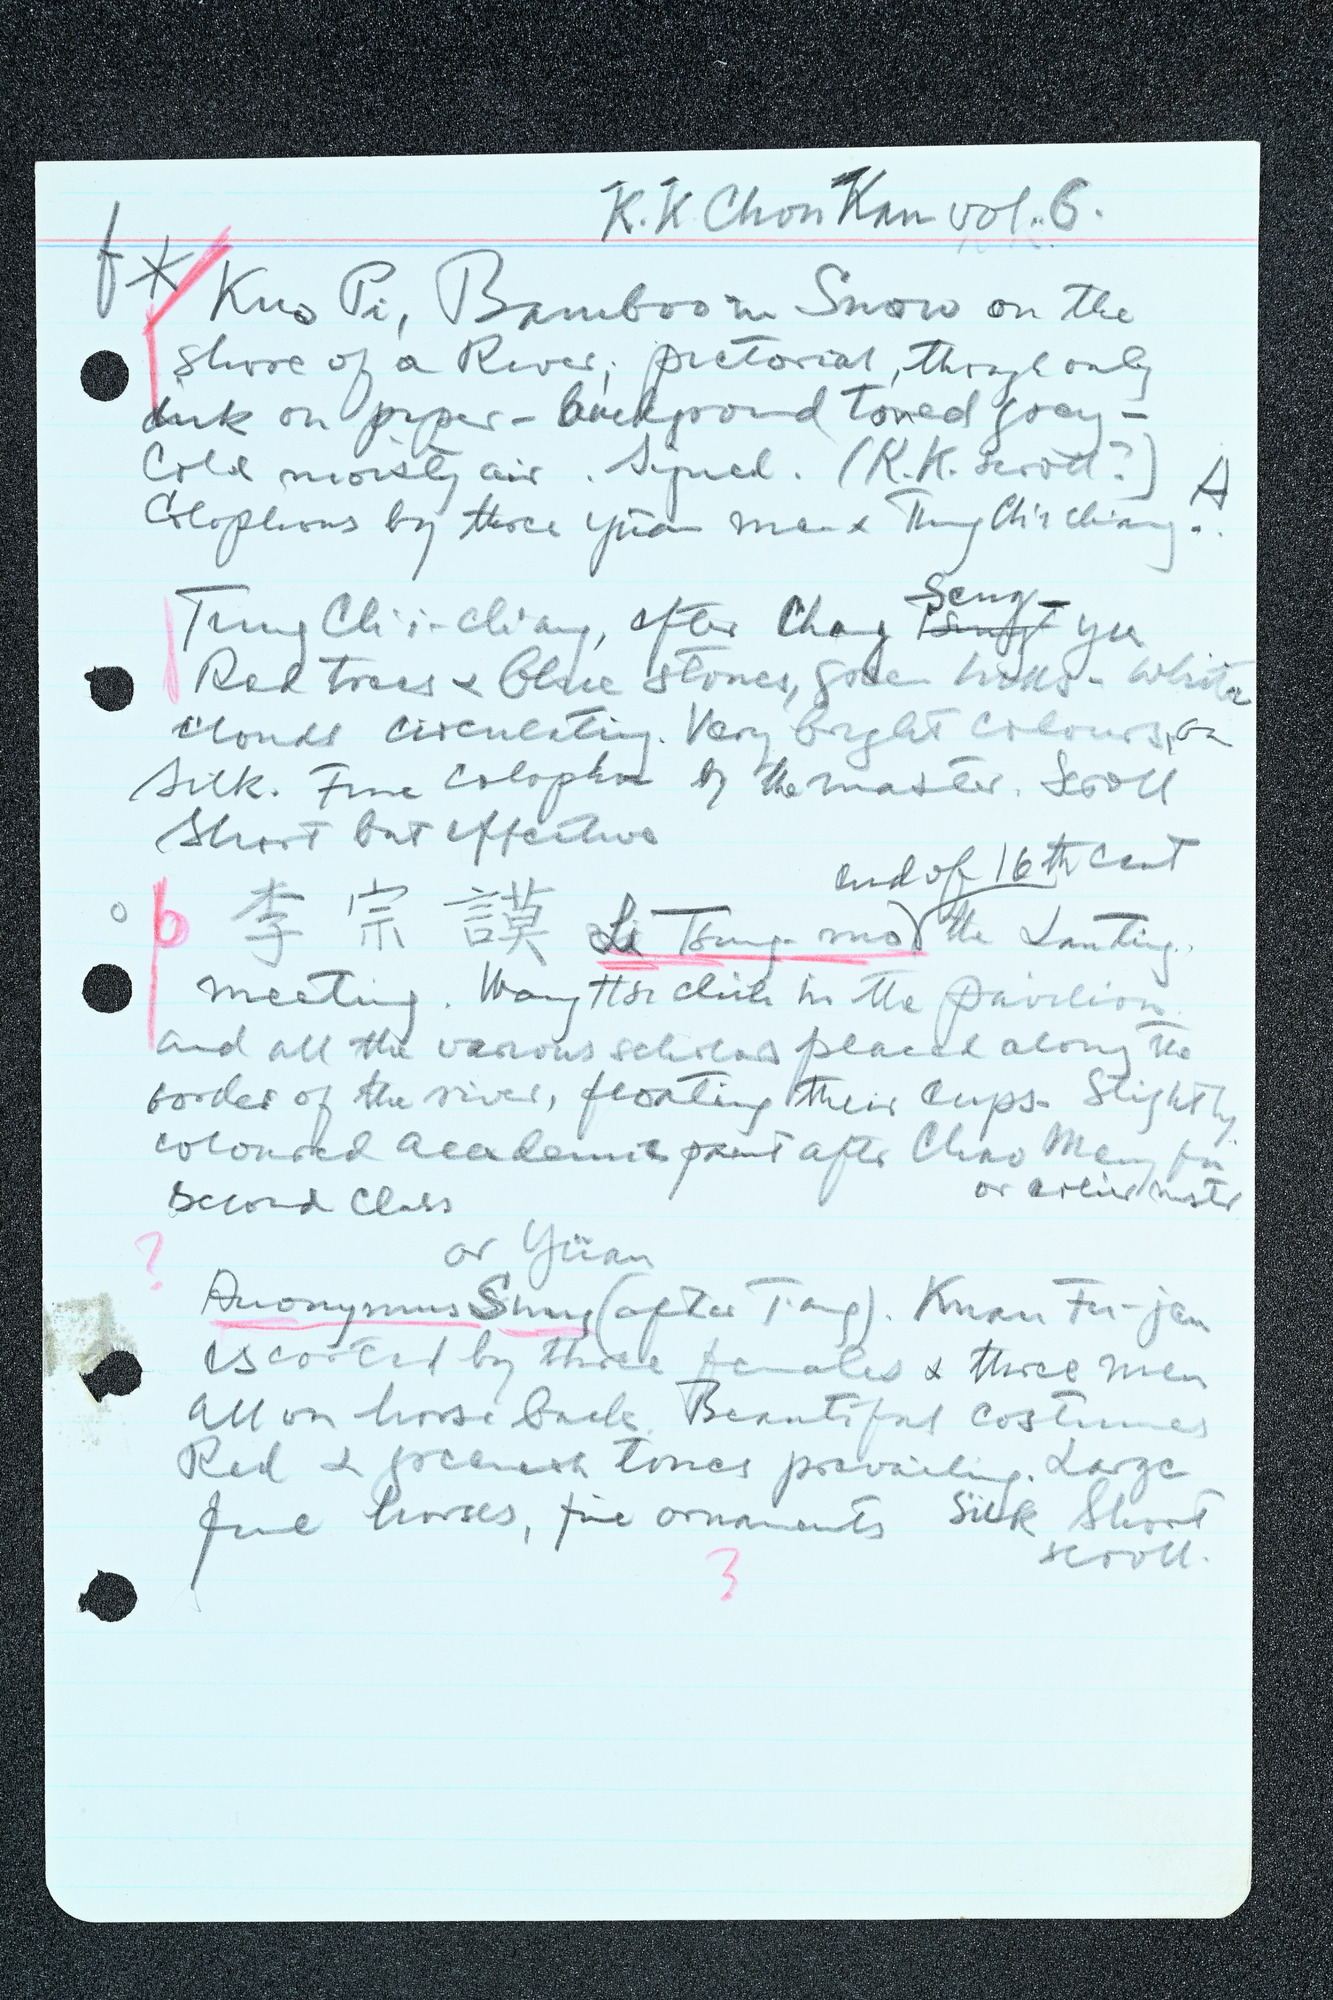 K.K. Chon Kan vol. 6.
f * Kuo Pi, Bamboo in Snow on the
shore of a River; pictorial, though only
ink on paper - background toned grey -
Cold moisty air. Signed. (K.K. scroll?) A
Colophons by three Yüan men & Tung Ch'i-chiang..
Tung Ch'i-ch'iang, after Chang Seng-yu
Red trees & blue stones, green hills - white
clouds circulating. Very bright colours, on
silk. Fine colophon by the master. Scroll
short but effective
end of 16th cent
o b 李宗謨 Li Tsung-mo) the Lanting.
meeting. Wang Hsi-chih in the pavilion
and all the various scholars placed along the
border of the river, floating their cups. Slightly
coloured academic paint after Chao Meng-fu
or earlier master
second class
? or Yüan
Anonymus Sung (after T'ang). Kuan Fu-jen
escorted by three females & three men
all on horse back. Beautiful costumes
Red & greenish tones prevailing. Large
fine horses, fine ornaments Silk Short
scroll.
?